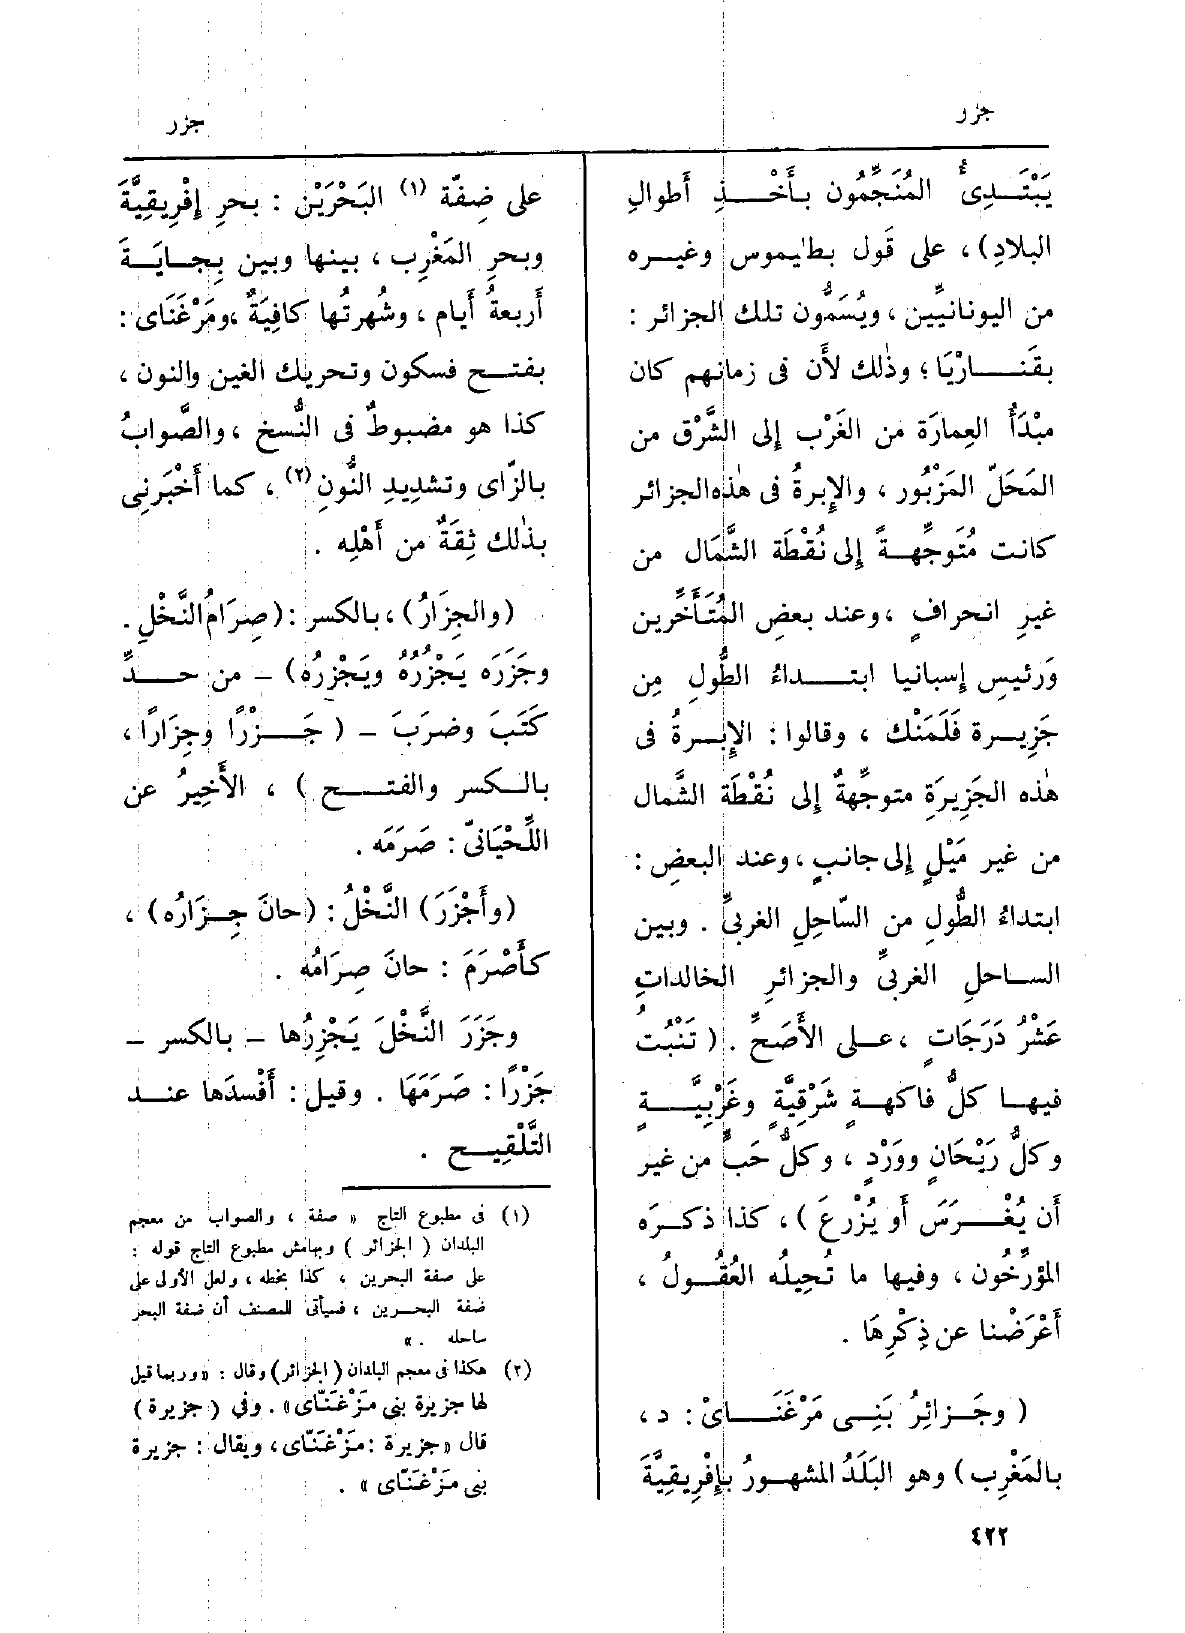 جزر
جزر
يَبْتَدِئُ المُنَجِّمُون بأَخْذِ أَطوالِ
البلادِ)، على قَول بطليموس وغيره
من اليونانيِّين، ويُسَمُّون تلك الجزائر :
بقَنارْيَا؛ وذٰلك لأَن فى زمانهم كان
مبْدَأُ العِمارَة من الغَرْب إِلى الشَّرْق من
المَحَلّ المَزْبُور ، والإِبرةُ فى هٰذه الجزائر
كانت مُتوجِّهةً إِلى نُقْطَة الشَّمَال من
غيرِ انحرافٍ ، وعند بعضِ المُتَأَخِّرين
وَرئيسِ إِسبانيا ابتداءُ الطُّولِ مِن
جَزِيرة فَلَمَنْك ، وقالوا : الإِبرةُ فى
هٰذه الجَزِيرَةِ متوجِّهةٌ إِلى نُقْطَة الشَّمال
من غير مَيْلٍ إِلى جانبٍ ، وعند البعضِ :
ابتداءُ الطُّولِ من السّاحِلِ الغربىِّ . وبين
الساحلِ الغربىِّ والجزائرِ الخالداتِ
عَشْرُ دَرَجَاتٍ ، على الأَصَحِّ . ( تَنْبُتُ
فيها كلُّ فاكهةٍ شَرْقِيَّةٍ وغَرْبِيَّةٍ
وكلُّ رَيْحَانٍ ووَرْدٍ ، وكلُّ حَبٍّ من غير
أَن يُغْرَسَ أَو يُزْرعَ ) ، كذا ذكرَه
المؤرِّخُون ، وفيها ما تُحِيلُه العُقُولُ ،
أَعْرَضْنا عن ذِكْرِهَا .
( وجَزائِرُ بَنِى مَرْغَنَاىْ : د ،
بالمَغْرِب ) وهو البَلَدُ المشهورُ بإِفْرِيقِيَّةَ
على ضِفَّة (١) البَحْرَيْن : بحرِ إِفْرِيقِيَّةَ
وبحرِ المَغْرِب ، بينها وبين بِجايَةَ
أَربعةُ أَيام ، وشُهرتُها كافِيَةٌ ، ومَرْغَنَاى :
بفتح فسكون وتحريك الغين والنون ،
كذا هو مضبوطٌ فى النُّسخ ، والصَّوابُ
بالزّاى وتشديدِ النُّونِ (٢) ، كما أَخْبَرنِى
بذٰلك ثِقَةٌ من أَهْلِه .
(والجِزَارُ) ، بالكسر : (صِرَامُ النَّخْلِ .
وجَزَرَه يَجْزُرُهُ ويَجْزِرُه) – من حدِّ
كَتَبَ وضرَبَ – ( جَزْرًا وجِزَارًا ،
بالكسر والفتح ) ، الأَخِيرُ عن
اللِّحْيَانىّ : صَرَمَه .
(وأَجْزَرَ) النَّخْلُ : (حانَ جِزَارُه) ،
كأَصْرَمَ : حانَ صِرَامُه .
وجَزَرَ النَّخْلَ يَجْزِرُها – بالكسر –
جَزْرًا : صَرَمَهَا . وقيل : أَفْسدَها عند
التَّلْقِيح .
(١) فى مطبوع التاج « صفة ، والصواب من معجم
البلدان ( الجزائر ) وبهامش مطبوع التاج قوله :
على صفة البحرين ، كذا بخطه ، ولعل الأولى على
ضفة البحرين ، فسيأتى للمصنف أن ضفة البحر
ساحله . »
(٢) هكذا فى معجم البلدان ( الجزائر ) وقال : « وربما قيل
لها جزيرة بنى مَزْغَنّاى» . وفي ( جزيرة )
قال «جزيرة : مَزْغَنّاى ، ويقال : جزيرة
بنى مَزْغَنّاى » .
٤٢٢